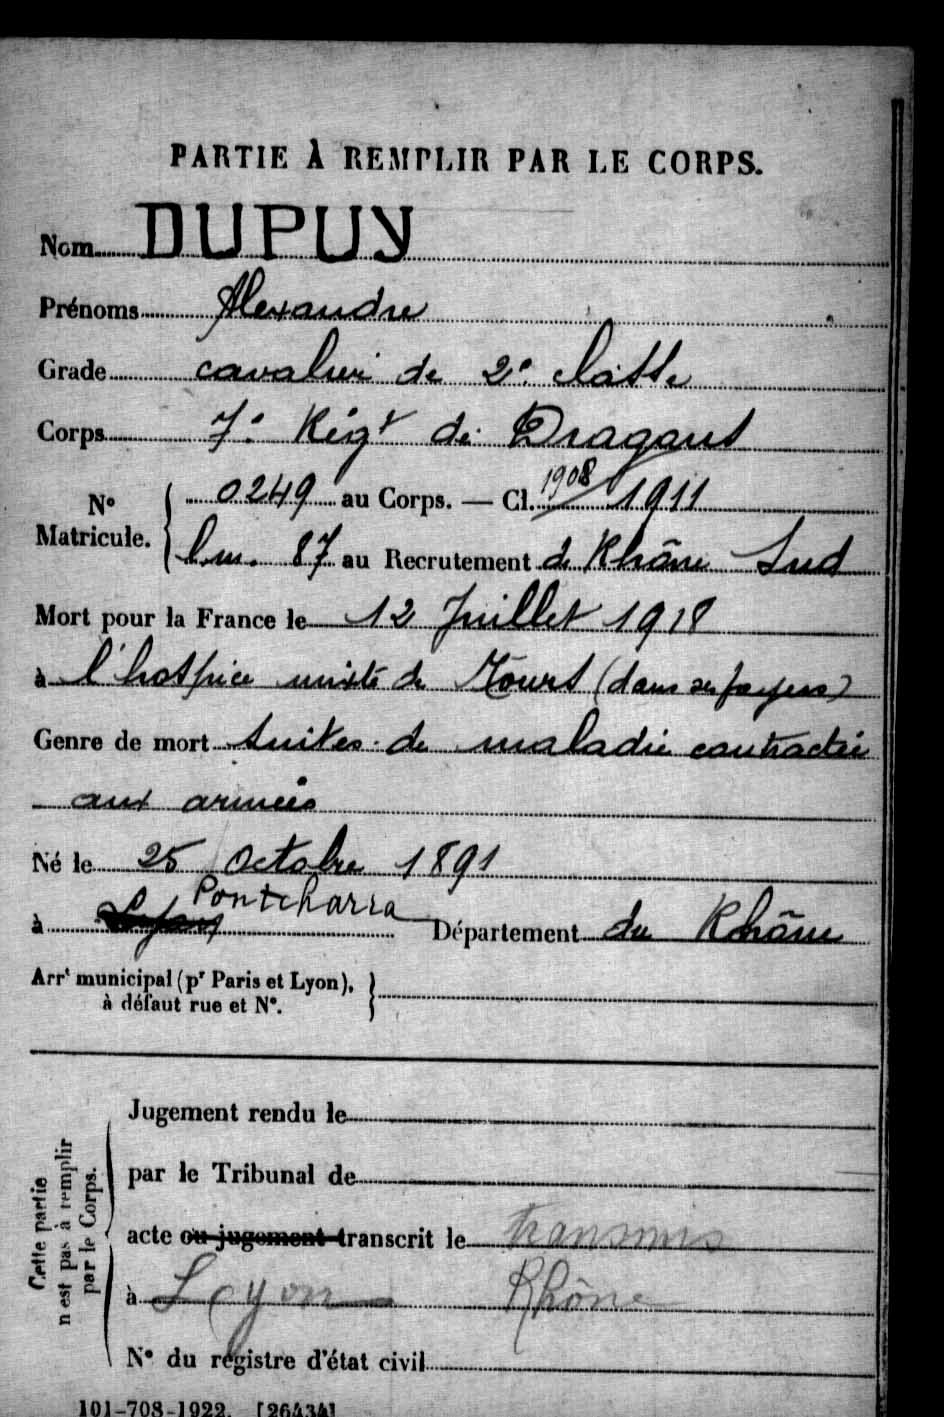 PARTIE À REMPLIR PAR LE CORPS.
Nom DUPUY
Prénoms Alexandre
Grade cavalier de 2e classe
Corps 7e Régt de Dragons
No Matricule. { 0249 au Corps. — Cl. 1908/1911
Cm. 87 au Recrutement de Rhône Sud
Mort pour la France le 12 Juillet 1918
à l'hospice mixte de Tours (dans ses foyers)
Genre de mort suites de maladie contractée
aux armées
Né le 25 Octobre 1891
à Lyon Pontcharra Département du Rhône
Arrt municipal (pr Paris et Lyon),
à défaut rue et No.
Cette partie
n'est pas à remplir
par le Corps.
Jugement rendu le
par le Tribunal de
acte ou jugement transcrit le transmis
à Lyon Rhône
No du registre d'état civil
101-708-1922. [26434]